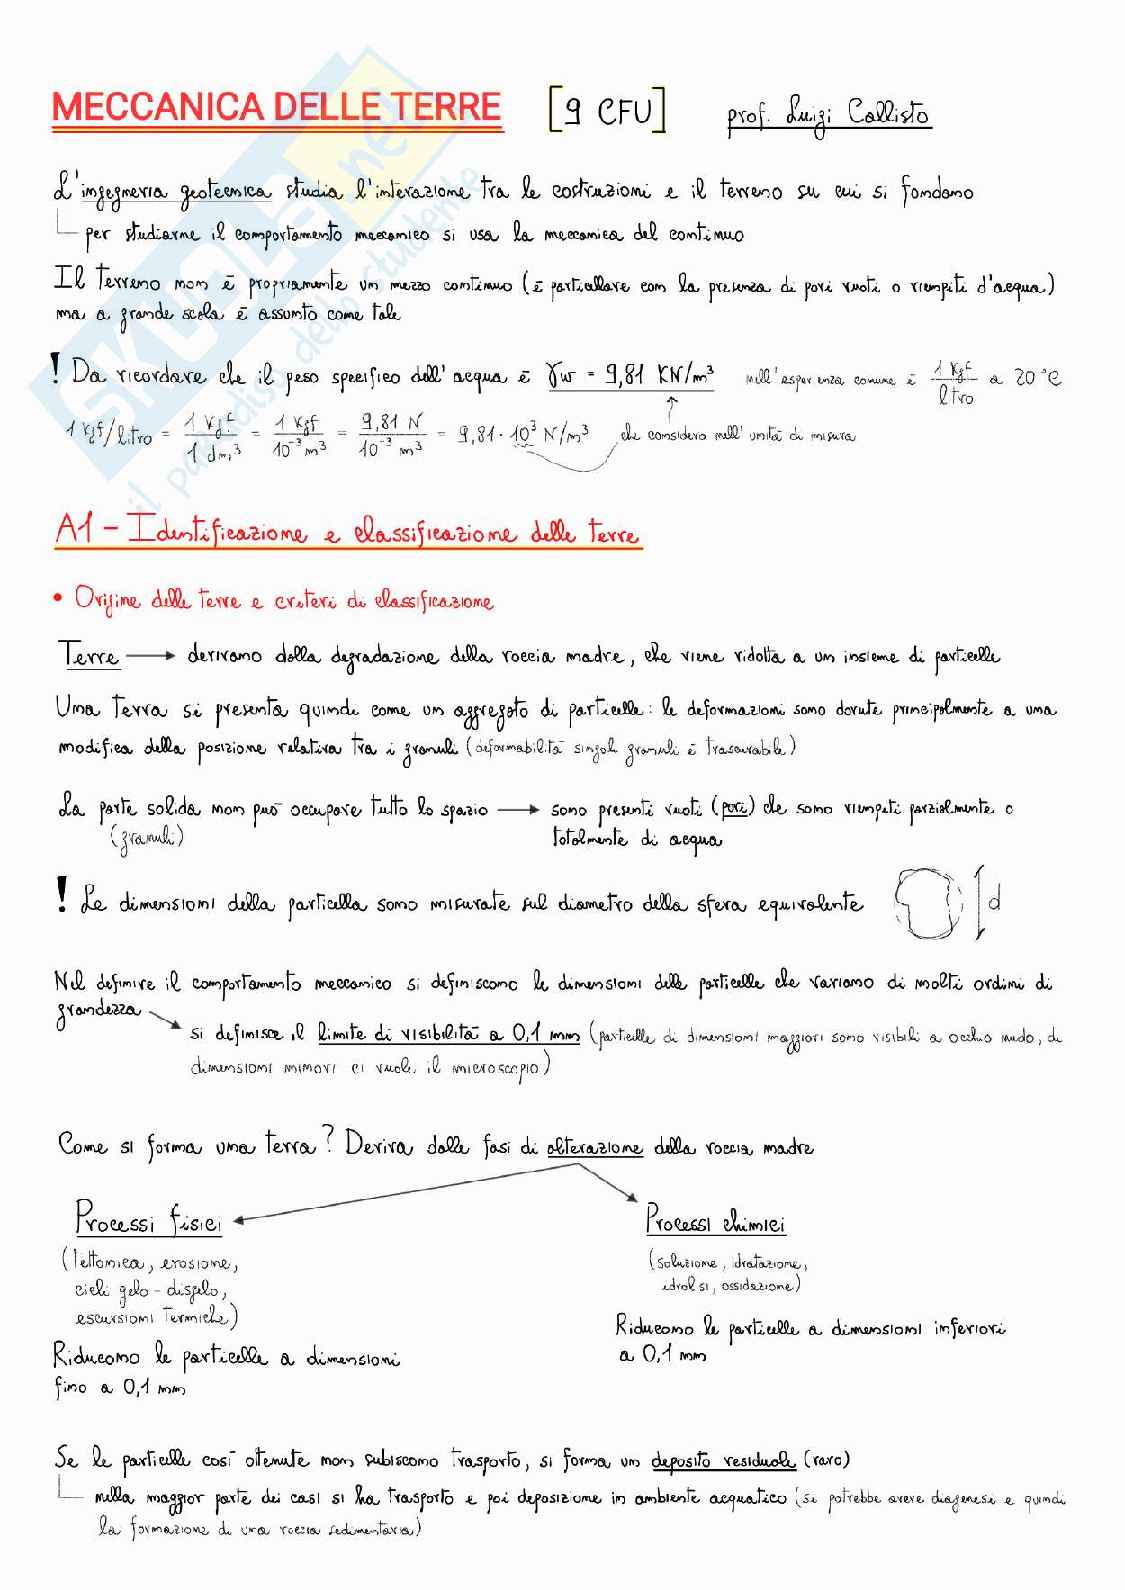 MECCANICA DELLE TERRE [9 CFU] prof. Luigi Callisto
L'ingegneria geotecnica studia l'interazione tra le costruzioni e il terreno su cui si fondano
per studiarne il comportamento meccanico si usa la meccanica del continuo
Il terreno non è propriamente un mezzo continuo (è particellare con la presenza di pori vuoti o riempiti d'acqua)
ma a grande scala è assunto come tale
! Da ricordare che il peso specifico dell'acqua è γw = 9,81 KN/m³ nell'esperienza comune è 1 Kgf / litro a 20 °C
1 Kgf/litro = 1 Kgf / 1 dm³ = 1 Kgf / 10⁻³ m³ = 9,81 N / 10⁻³ m³ = 9,81 · 10³ N/m³ che considero nell'unità di misura
A1 - Identificazione e classificazione delle terre
• Origine delle terre e criteri di classificazione
Terre → derivano dalla degradazione della roccia madre, che viene ridotta a un insieme di particelle
Una terra si presenta quindi come un aggregato di particelle: le deformazioni sono dovute principalmente a una
modifica della posizione relativa tra i granuli (deformabilità singoli granuli è trascurabile)
La parte solida non può occupare tutto lo spazio → sono presenti vuoti (pori) che sono riempiti parzialmente o
(granuli) totalmente di acqua
! Le dimensioni della particella sono misurate sul diametro della sfera equivalente d
Nel definire il comportamento meccanico si definiscono le dimensioni delle particelle che variano di molti ordini di
grandezza
si definisce il limite di visibilità a 0,1 mm (particelle di dimensioni maggiori sono visibili a occhio nudo, di
dimensioni minori ci vuole il microscopio)
Come si forma una terra? Deriva dalle fasi di alterazione della roccia madre
Processi fisici Processi chimici
(tettonica, erosione, (soluzione, idratazione,
cicli gelo-disgelo, idrolisi, ossidazione)
escursioni termiche)
Riducono le particelle a dimensioni inferiori
a 0,1 mm
Riducono le particelle a dimensioni
fino a 0,1 mm
Se le particelle così ottenute non subiscono trasporto, si forma un deposito residuale (raro)
nella maggior parte dei casi si ha trasporto e poi deposizione in ambiente acquatico (si potrebbe avere diagenesi e quindi
la formazione di una roccia sedimentaria)
SKUOLA.net
il paradiso dello studente